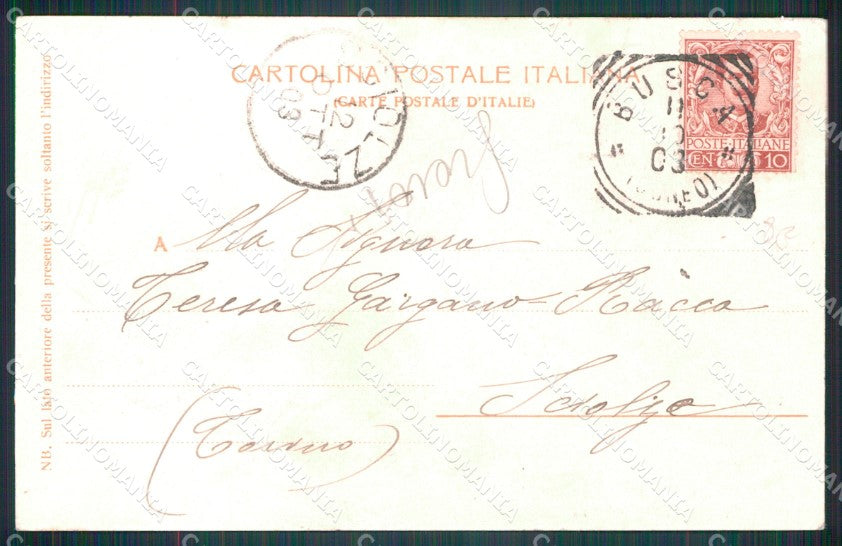 CARTOLINA POSTALE ITALIANA
(CARTE POSTALE D'ITALIE)
SCIOLZE
2
OTT
03
BUSCA
11
10
03
(CUNEO)
POSTE ITALIANE
CENT. 10
A Alla Signora
Teresa Gargano=Racca
Sciolze
(Torino)
NB. Sul lato anteriore della presente si scrive soltanto l'indirizzo
CARTOLINOMANIA